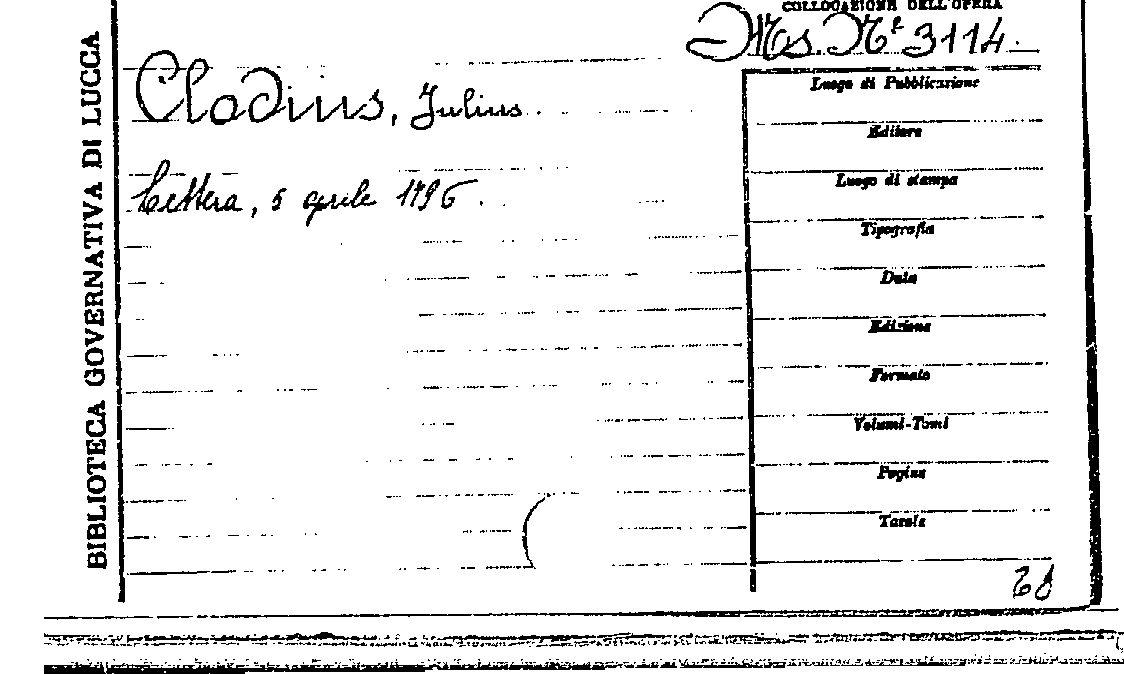 COLLOCAZIONE DELL'OPERA
Ms. N° 3114.
BIBLIOTECA GOVERNATIVA DI LUCCA
Clodius, Julius.
Lettera, 5 aprile 1796.
Luogo di Pubblicazione
Editore
Luogo di stampa
Tipografia
Data
Edizione
Formato
Volumi-Tomi
Pagine
Tavole